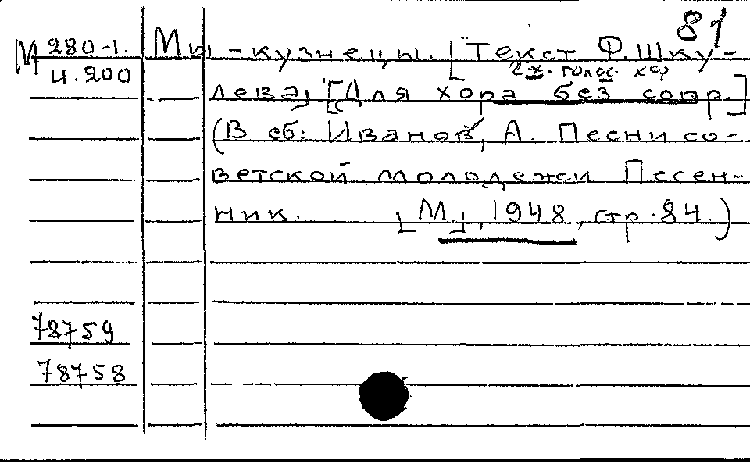 81
М 280-1. Мы-кузнецы. [Текст Ф. Шку-
и. 200
2х. голос. хор
лева, [Для хора без сопр.]
(В сб: Иванов, А. Песни со-
ветской молодежи Песен-
ник. [М], 1948, стр. 84.)
78759
78758